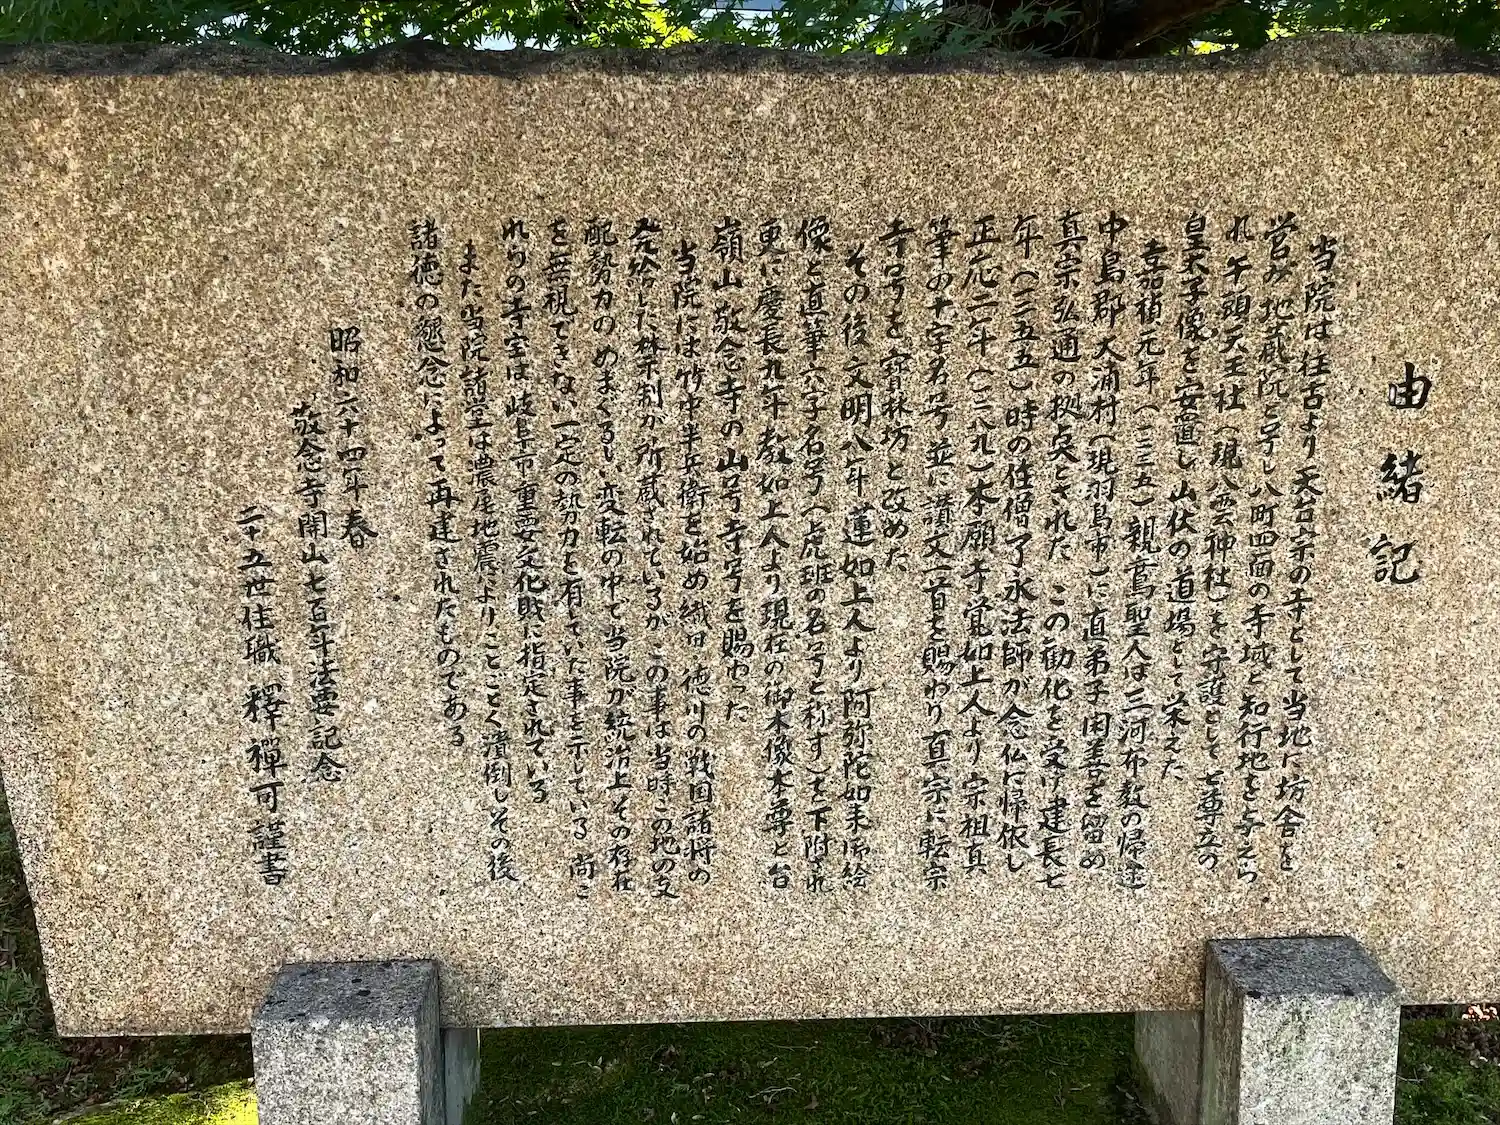 由緒記
当院は往古より天台宗の寺として当地に坊舎を
営み地蔵院と号し八町四面の寺域と知行地を与えら
れ午頭天王社(現八雲神社)を守護として七尊立の
皇太子像を安置し山伏の道場として栄えた
嘉禎元年(一二三五)親鸞聖人は三河布教の帰途
中島郡大浦村(現羽島市)に直弟子閑善を留め
真宗弘通の拠点とされた この勧化を受け建長七
年(一二五五)時の住僧了永法師が念仏に帰依し
正応二年(一二八九)本願寺覚如上人より宗祖真
筆の十字名号並に讃文一首を賜わり真宗に転宗
寺号を寶林坊と改めた
その後文明八年蓮如上人より阿弥陀如来御絵
像と直筆六字名号(虎班の名号と称す)を下附され
更に慶長九年教如上人より現在の御木像本尊と台
嶺山敬念寺の山号寺号を賜わった
当院には竹中半兵衛を始め織田 徳川の戦国諸将の
発給した禁制が所蔵されているが この事は当時この地の支
配勢力の めまぐるしい変転の中で当院が統治上その存在
を無視できない一定の勢力を有していた事を示している 尚こ
れらの寺宝は岐阜市重要文化財に指定されている
また当院諸堂は濃尾地震によりことごとく潰倒しその後
諸徳の懇念によって再建されたものである
昭和六十四年春
敬念寺開山七百年法要記念
二十五世住職 釋禪可謹書